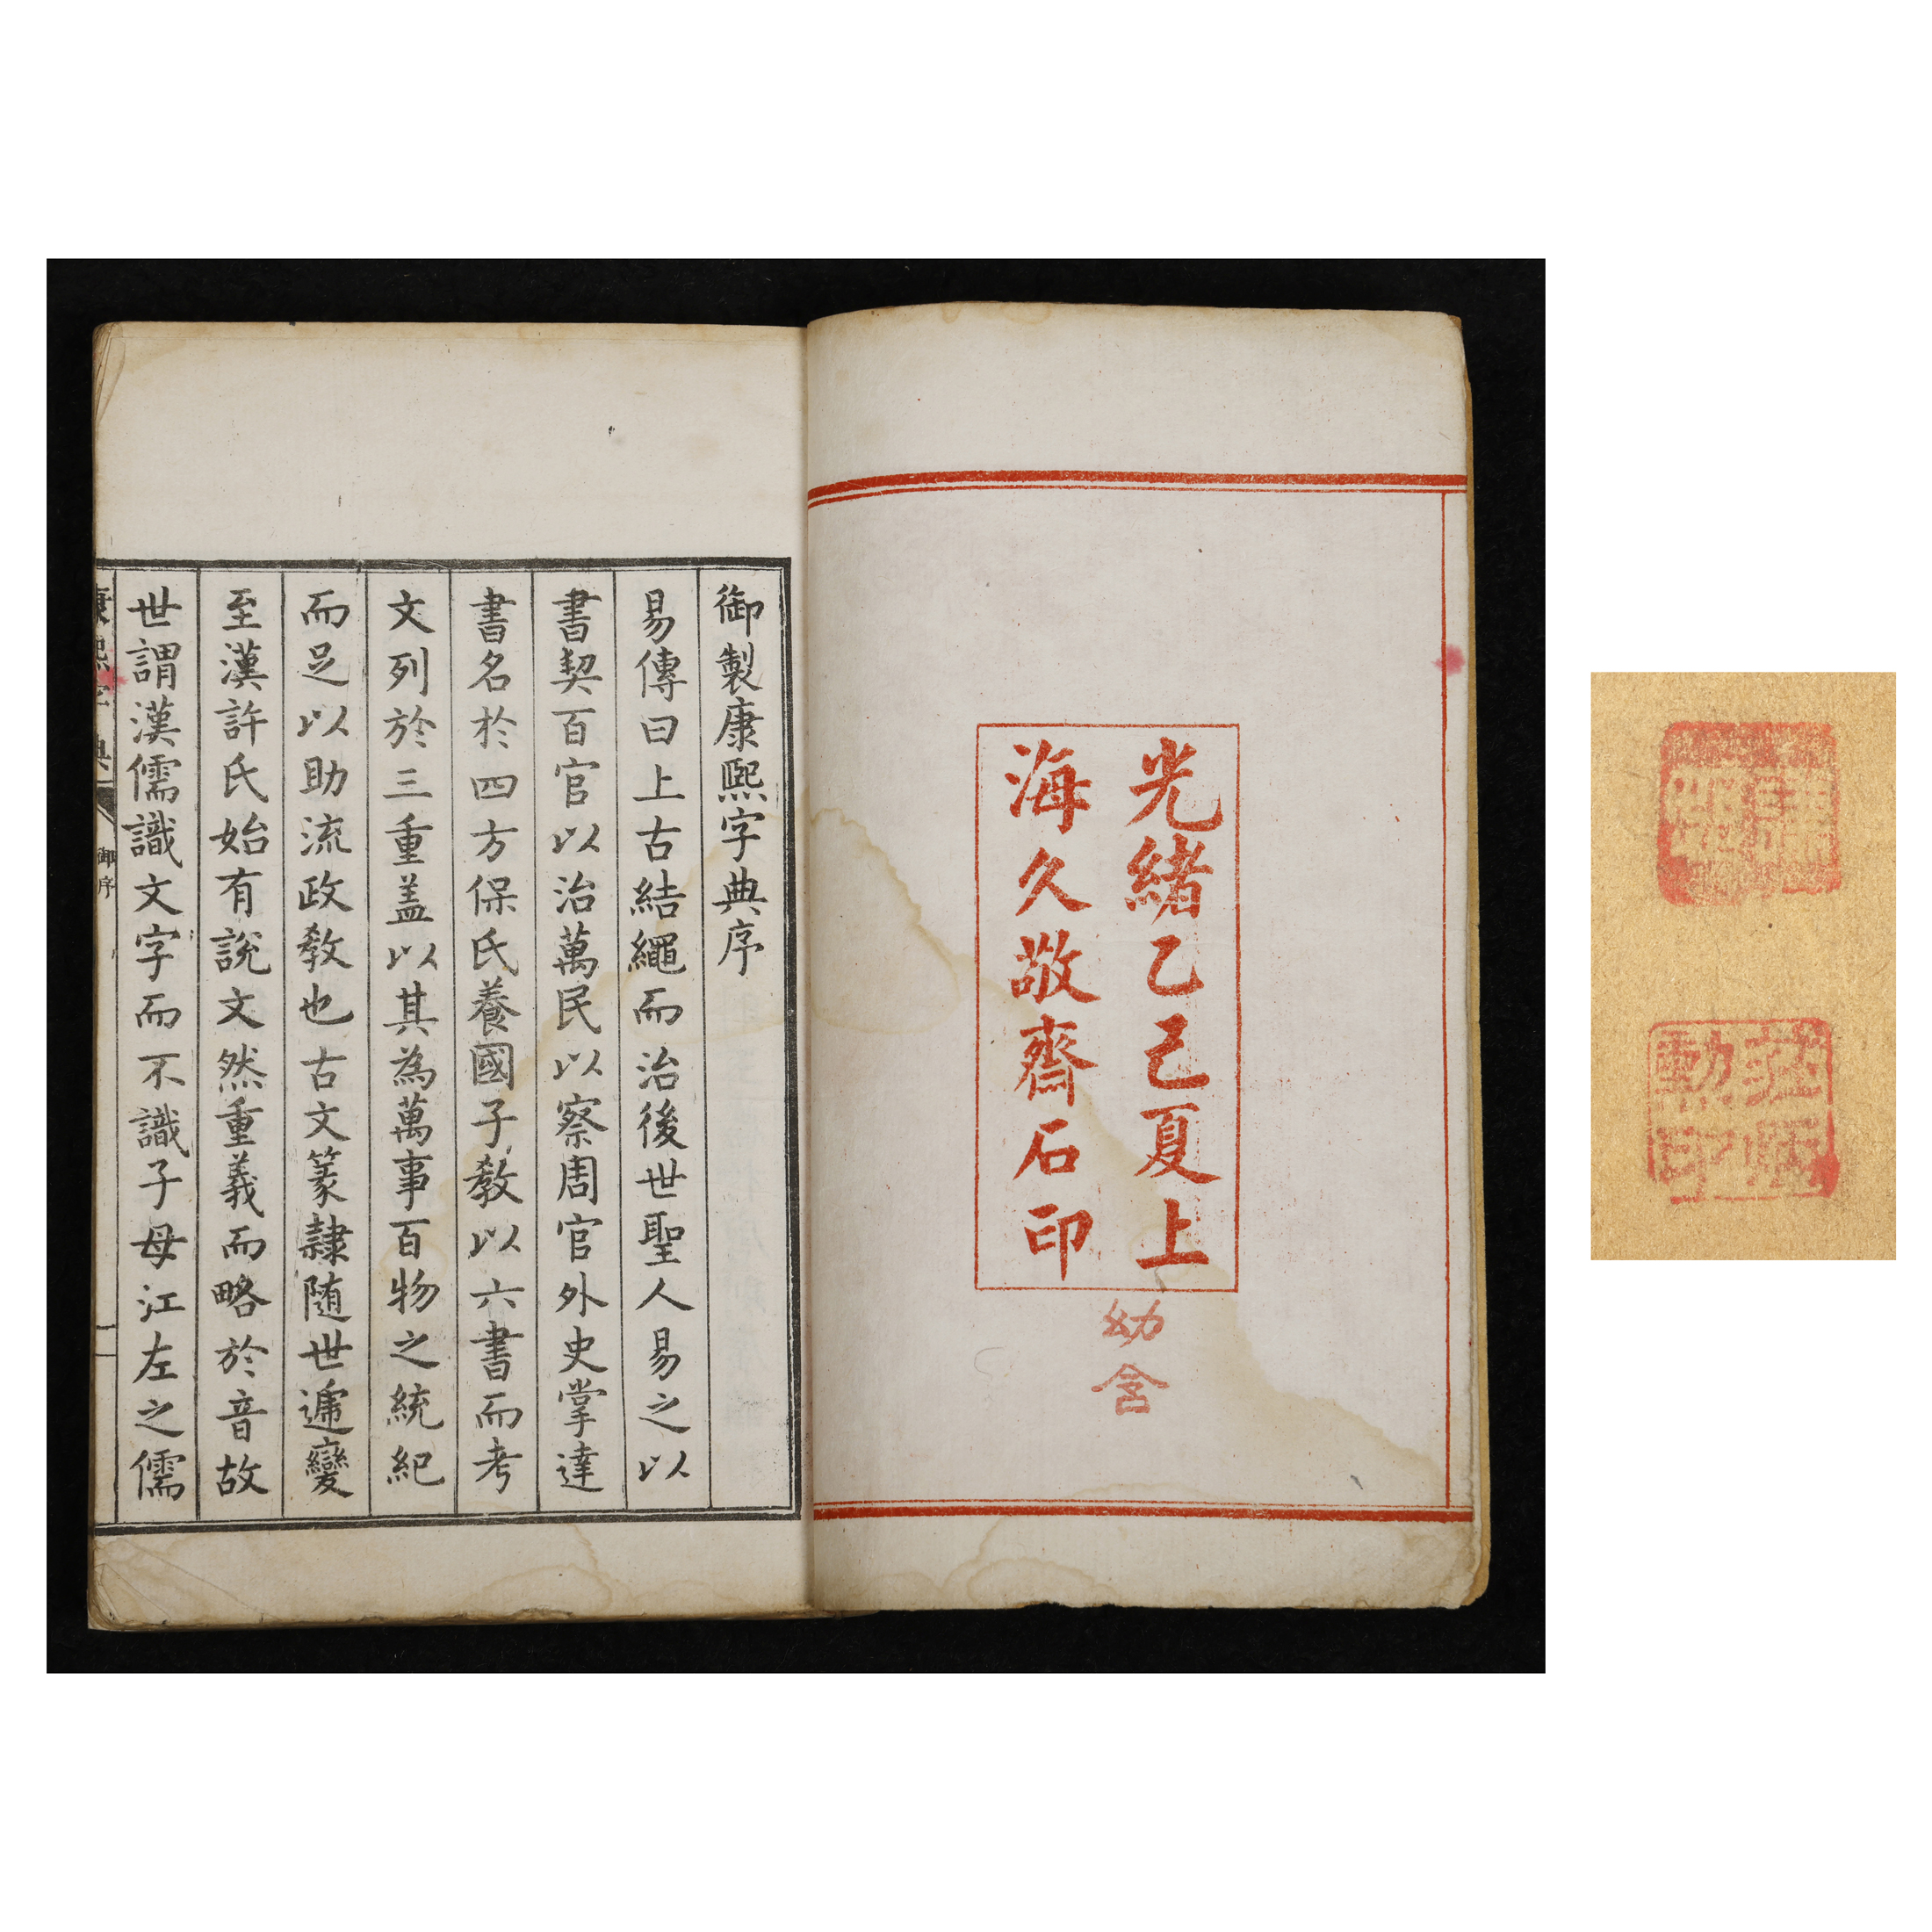 光緒乙巳夏上
海久敬齋石印
幼含
御製康熙字典序
易傳曰上古結繩而治後世聖人易之以
書契百官以治萬民以察周官外史掌達
書名於四方保氏養國子教以六書而考
文列於三重盖以其為萬事百物之統紀
而足以助流政教也古文篆隷随世遞變
至漢許氏始有說文然重義而略於音故
世謂漢儒識文字而不識子母江左之儒
康熙字典
御序